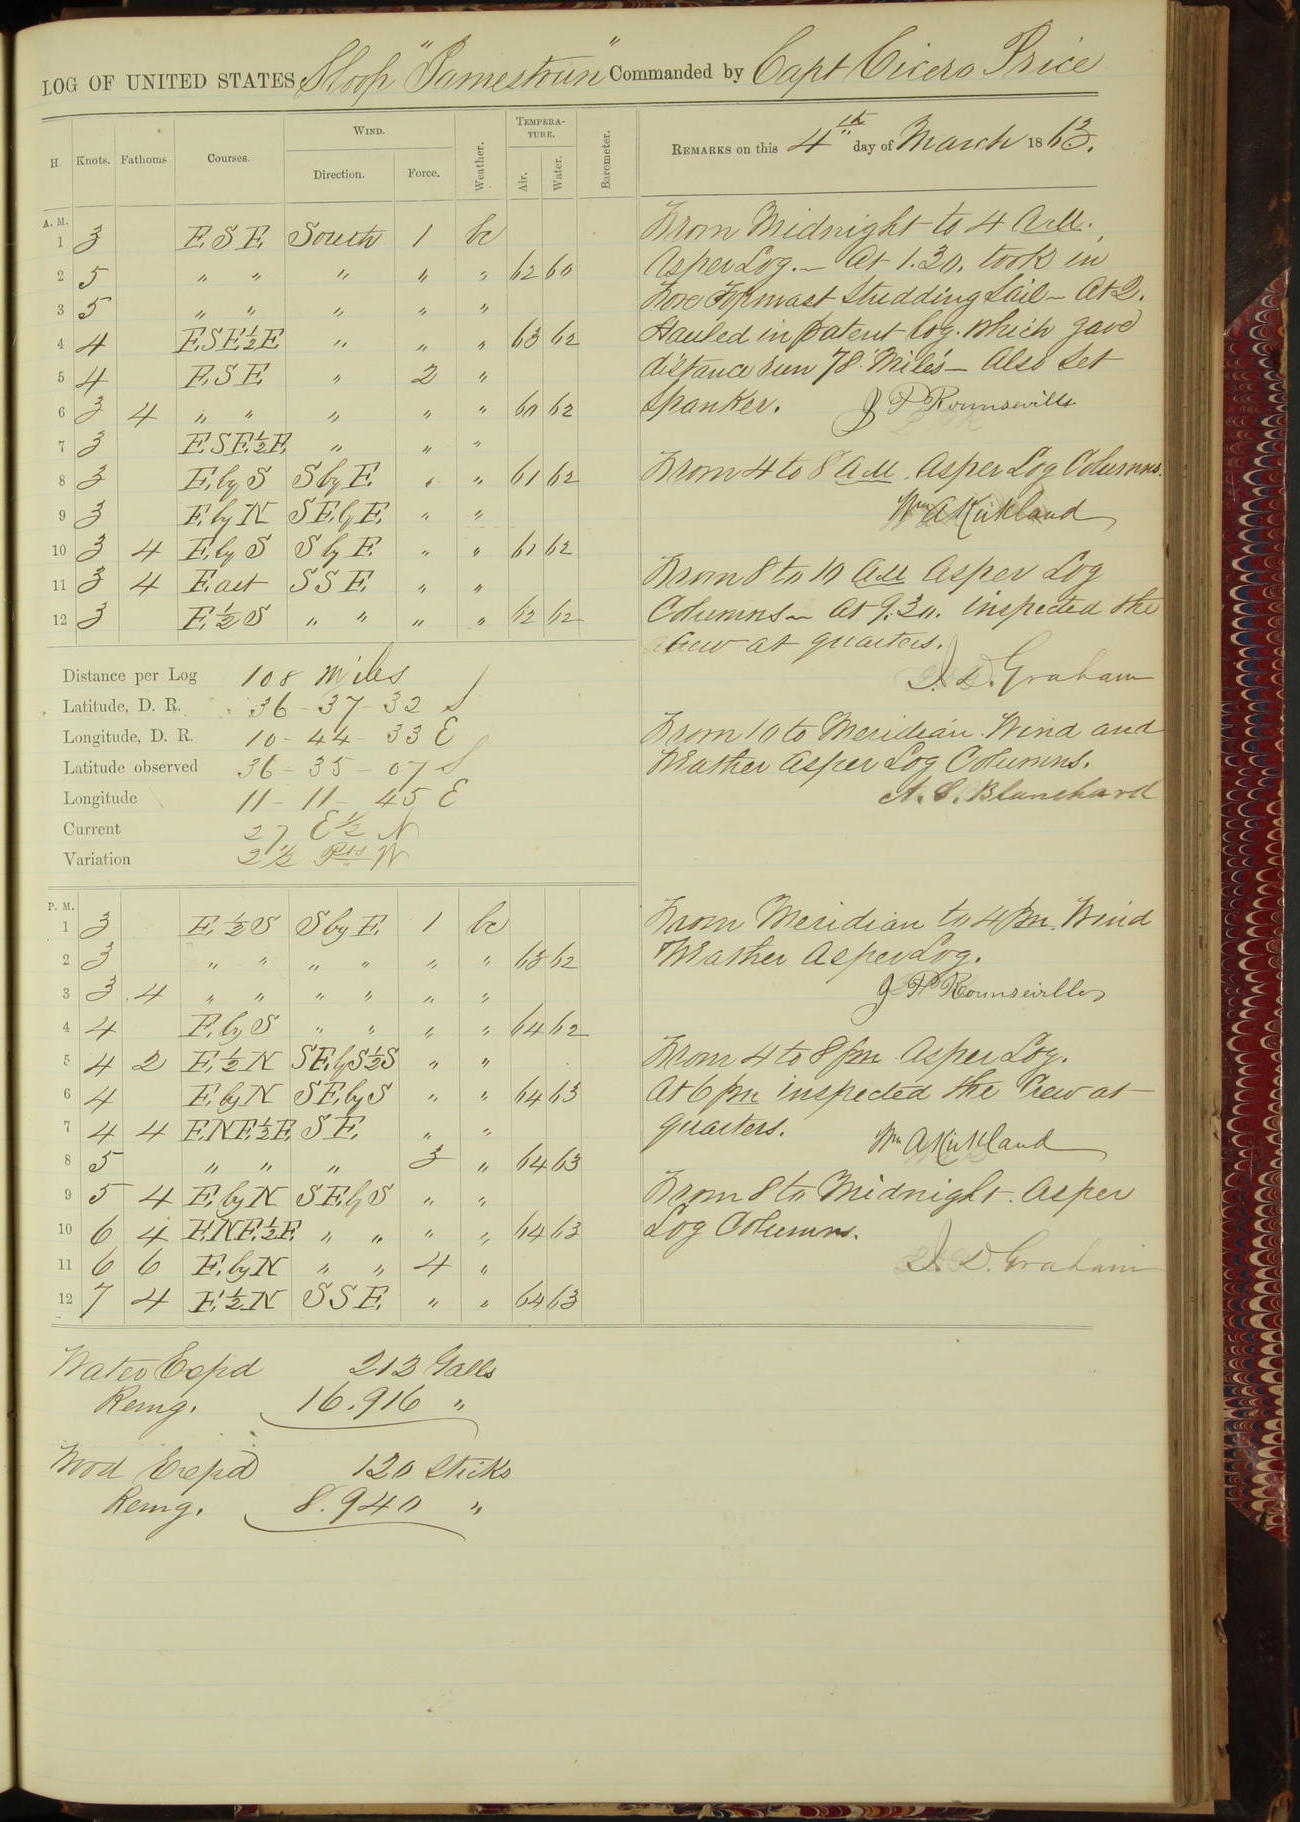 LOG OF UNITED STATES Sloop "Jamestown" Commanded by Capt Cicero Price
H. Knots. Fathoms. Courses. WIND. Direction. Force. Weather. TEMPERATURE. Air. Water. Barometer.
REMARKS on this 4th day of March 1863.
A. M.
1 3 E S E South 1 bc
2 5 " " " " " 62 60
3 5 " " " " "
4 4 ESE½E " " " 63 62
5 4 E.S.E. " 2 "
6 3 4 " " " " " 60 62
7 3 ESE½E. " " "
8 3 E.by S S by E. " " 61 62
9 3 E by N SE.by E. " "
10 3 4 E.by S S by E " " 61 62
11 3 4 East S S E. " "
12 3 E.½ S " " " " 62 62
From Midnight to 4 A.M.,
As per Log.— At 1.30. took in
Fore Topmast Studding Sail— At 2.
Hauled in patent log. which gave
distance run 78 Miles— Also Set
Spanker. J P Rounsevills
From 4 to 8 A M. As per Log Columns.
Wm A Kirkland
From 8 to 10 AM As per Log
Columns— At 9.30. inspected the
Crew at quarters.
J. D. Graham
From 10 to Meridian. Wind and
Weather As per Log Columns.
A. C. Blanchard
Distance per Log 108 Miles
Latitude, D. R. 36 - 37 - 32 S
Longitude, D. R. 10 - 44 - 33 E
Latitude observed 36 - 35 - 07 S
Longitude 11 - 11 - 45 E
Current 27 E ½ N
Variation 2½ Pts W
P. M.
1 3 E. ½ S S by E. 1 bc
2 3 " " " " " " 63 62
3 3 4 " " " " " "
4 4 E. by S " " " " 64 62
5 4 2 E ½ N SE.by S½S " "
6 4 E. by N SE.by S " " 64 63
7 4 4 ENE½E S E. " "
8 5 " " " 3 " 64 63
9 5 4 E. by N SE.by S " "
10 6 4 ENE½E. " " " " 64 63
11 6 6 E. by N " " 4 "
12 7 4 E ½ N S S E. " " 64 63
From Meridian to 4 pm. Wind
Weather As per Log.
J P Rounsevills
From 4 to 8 pm As per Log.
At 6 pm inspected the Crew at
quarters. Wm A Kirkland
From 8 to Midnight. As per
Log Columns.
J. D. Graham
Water Expd 212 Galls
Remg. 16.916 "
Wood Expd 120 Sticks
Remg. 8.940 "